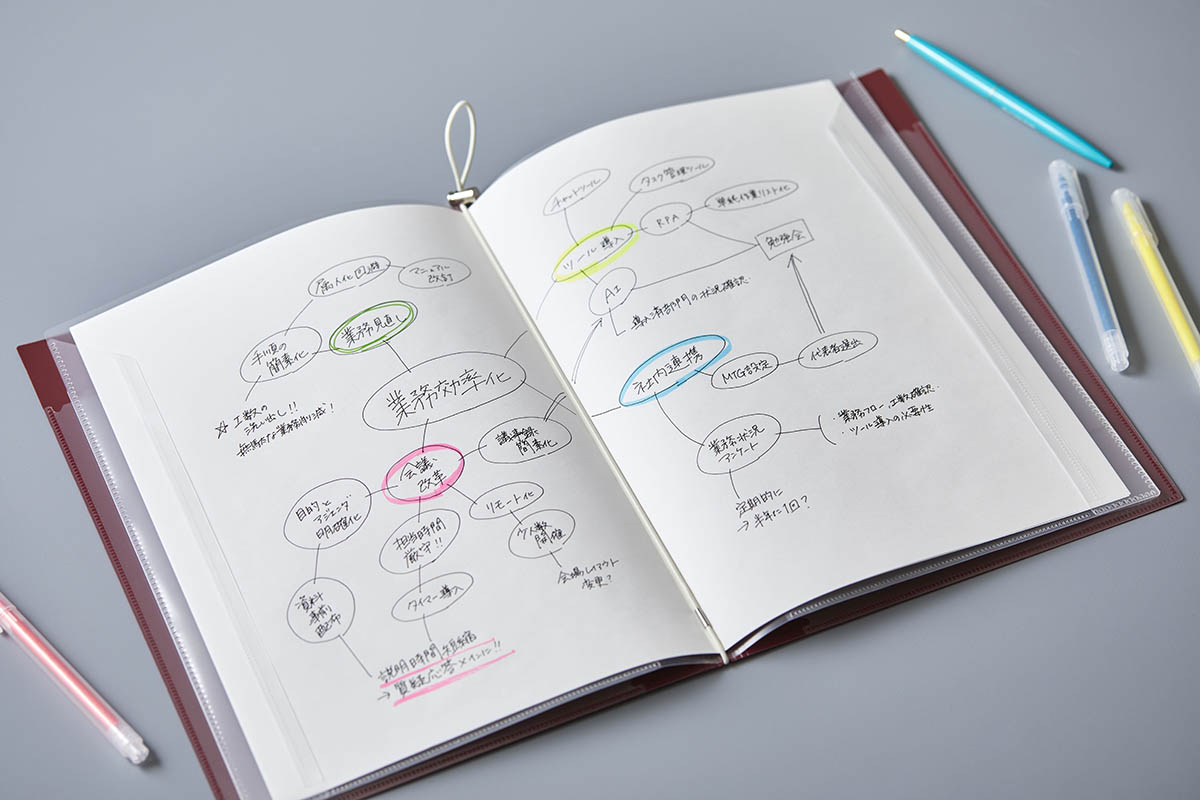 属人化回避
マニュアル
改訂
業務見直し
手順の
簡素化
☆工数の
洗い出し!!
無駄な業務削減!
業務効率化
会議
改革
議事録
簡素化
目的と
アジェンダ
明確化
担当時間
厳守!!
リモート化
少人数
開催
会場レイアウト
変更?
資料
事前
配布
タイマー導入
説明時間短縮
→質疑応答メインに!!
チャットツール
タスク管理ツール
ツール導入
RPA
単純作業リスト化
勉強会
AI
導入済部門の状況確認
社内連携
MTG設定
代表者選出
業務状況
アンケート
・業務フロー、工数確認
・ツール導入の必要性
定期的に
→半年に1回?